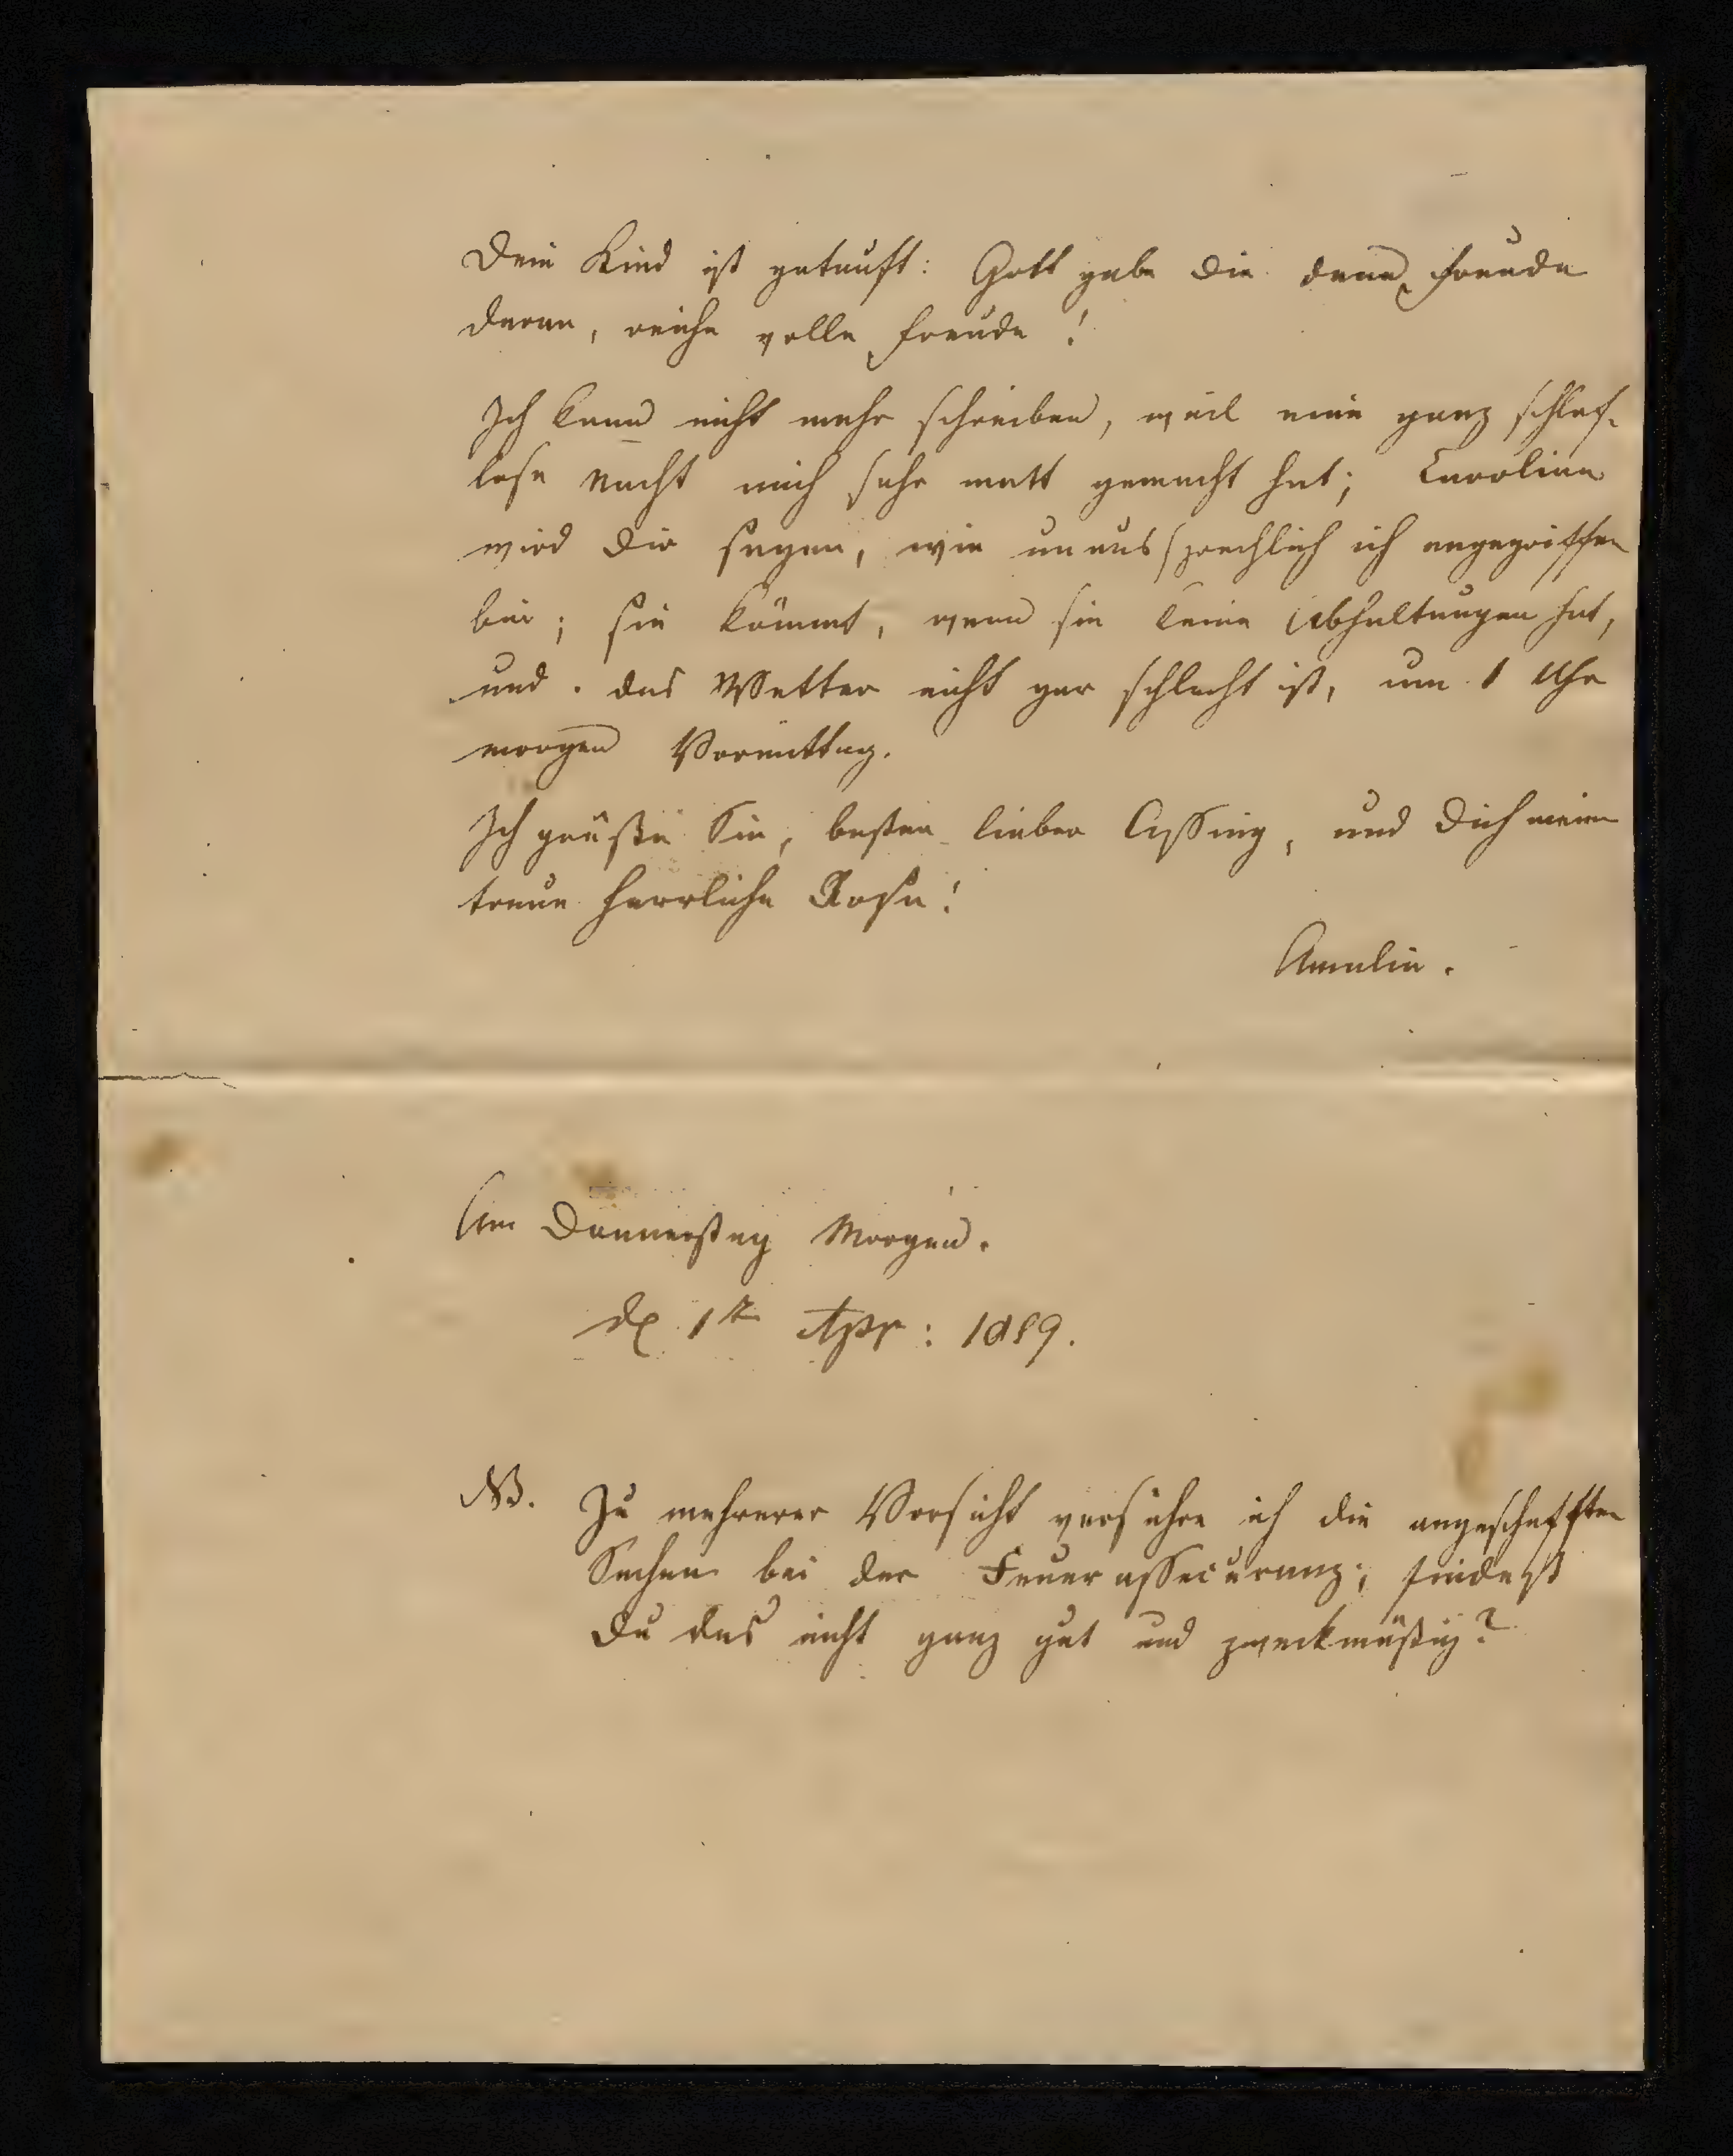 Dein Kind ist getauft: Gott gebe Dir denn Freude
daran, reiche volle Freude!
Ich kann nicht mehr schreiben, weil eine ganz schlaf-
lose Nacht mich sehr matt gemacht hat; Caroline
wird Dir sagen, wie unaussprechlich ich angegriffen
bin; sie kömmt, wenn sie keine Abhaltungen hat,
und das Wetter nicht gar schlecht ist, um 1 Uhr
morgen Vormittag.
Ich grüße Sie, bester lieber Assing, und Dich meine
treue herrliche Rosa!
Amalie.
Am Donnerstag Morgen.
d. 1ten Apr: 1819.
NB. Zu mehrerer Vorsicht versichre ich die angeschafften
Sachen bei der Feuerassecuranz; findest
Du das nicht ganz gut und zweckmäßig?